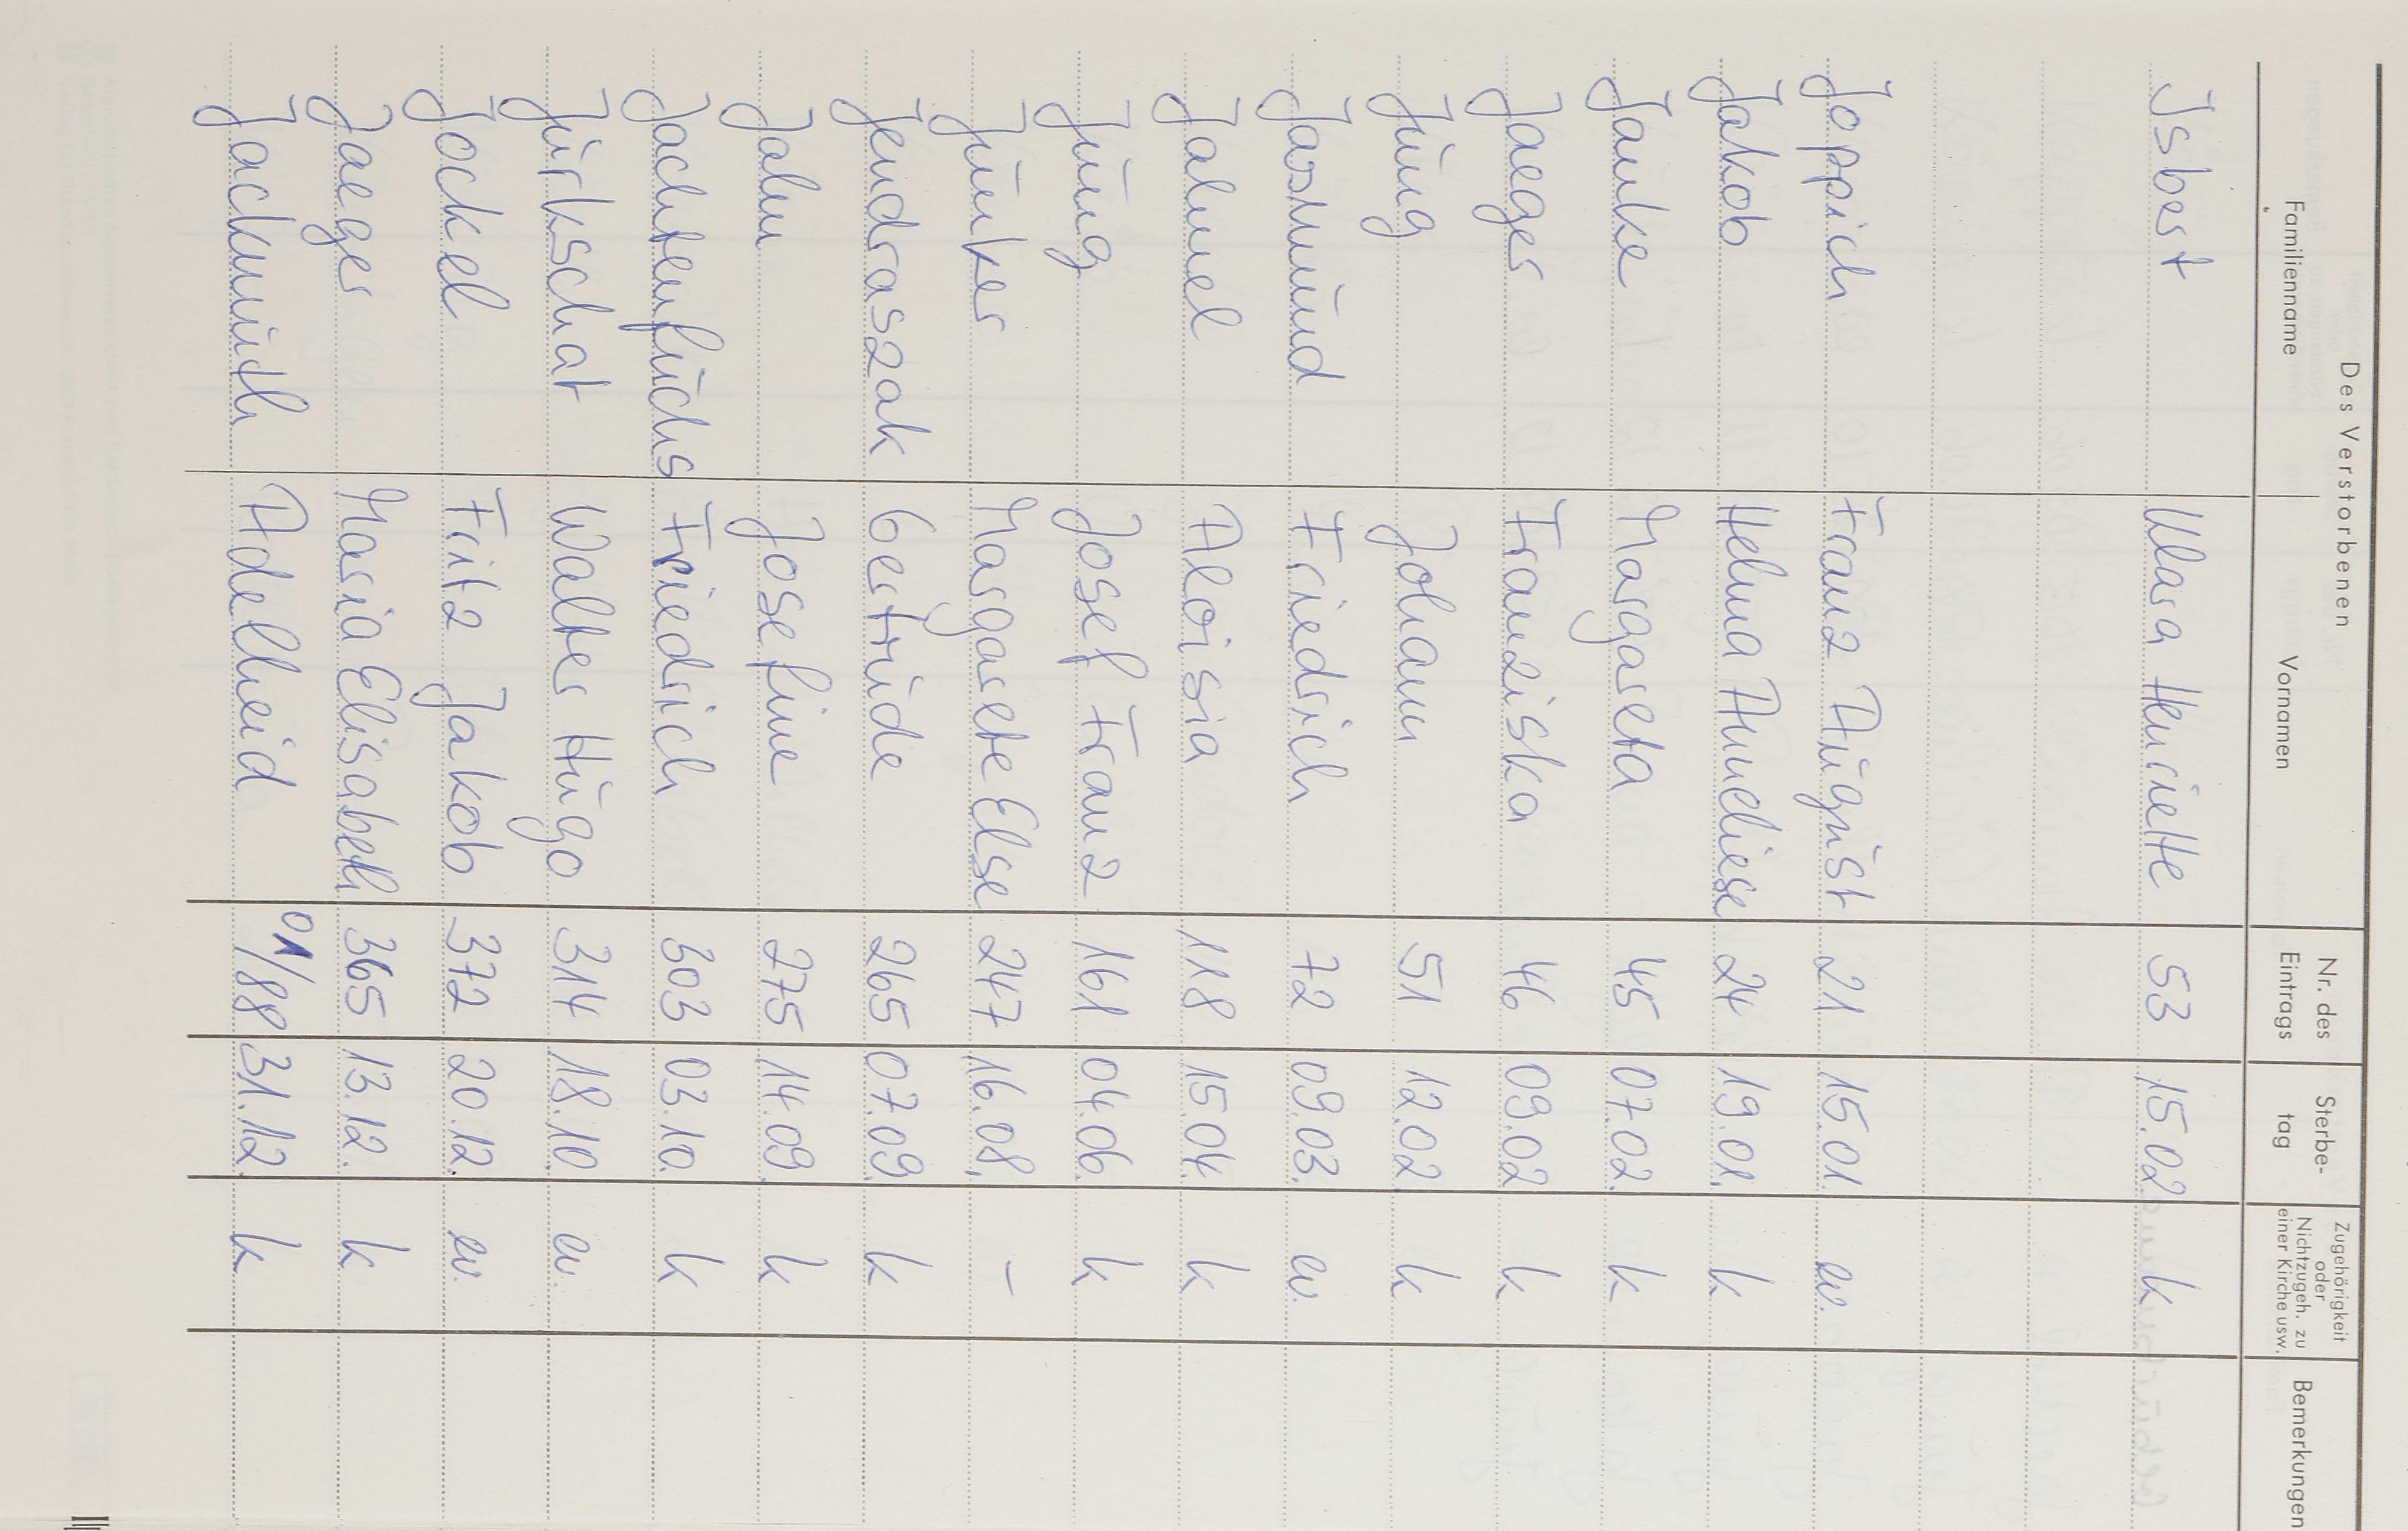 Des Verstorbenen
Familienname Vornamen Nr. des Eintrags Sterbe-tag Zugehörigkeit oder Nichtzugeh. zu einer Kirche usw. Bemerkungen
Isbert Klara Henriette 53 15.02. k
Joppich Franz August 21 15.01. ev.
Jakob Helma Anneliese 24 19.01. k
Janke Margareta 45 07.02. k
Jaeger Franziska 46 09.02. k
Jung Johann 51 12.02. k
Jasmund Friedrich 72 09.03. ev.
Jahnel Aloisia 118 15.04. k
Jung Josef Franz 161 04.06. k
Junker Margarete Else 247 16.08. –
Jendraszak Gertrude 265 07.09. k
Jahn Josefine 275 14.09. k
Jachtenfuchs Friedrich 303 03.10. k
Jurkschat Walter Hugo 314 18.10. ev.
Jockel Fritz Jakob 372 20.12. ev.
Jaeger Maria Elisabeth 365 13.12. k
Jackmuth Adelheid 01/88 31.12. k